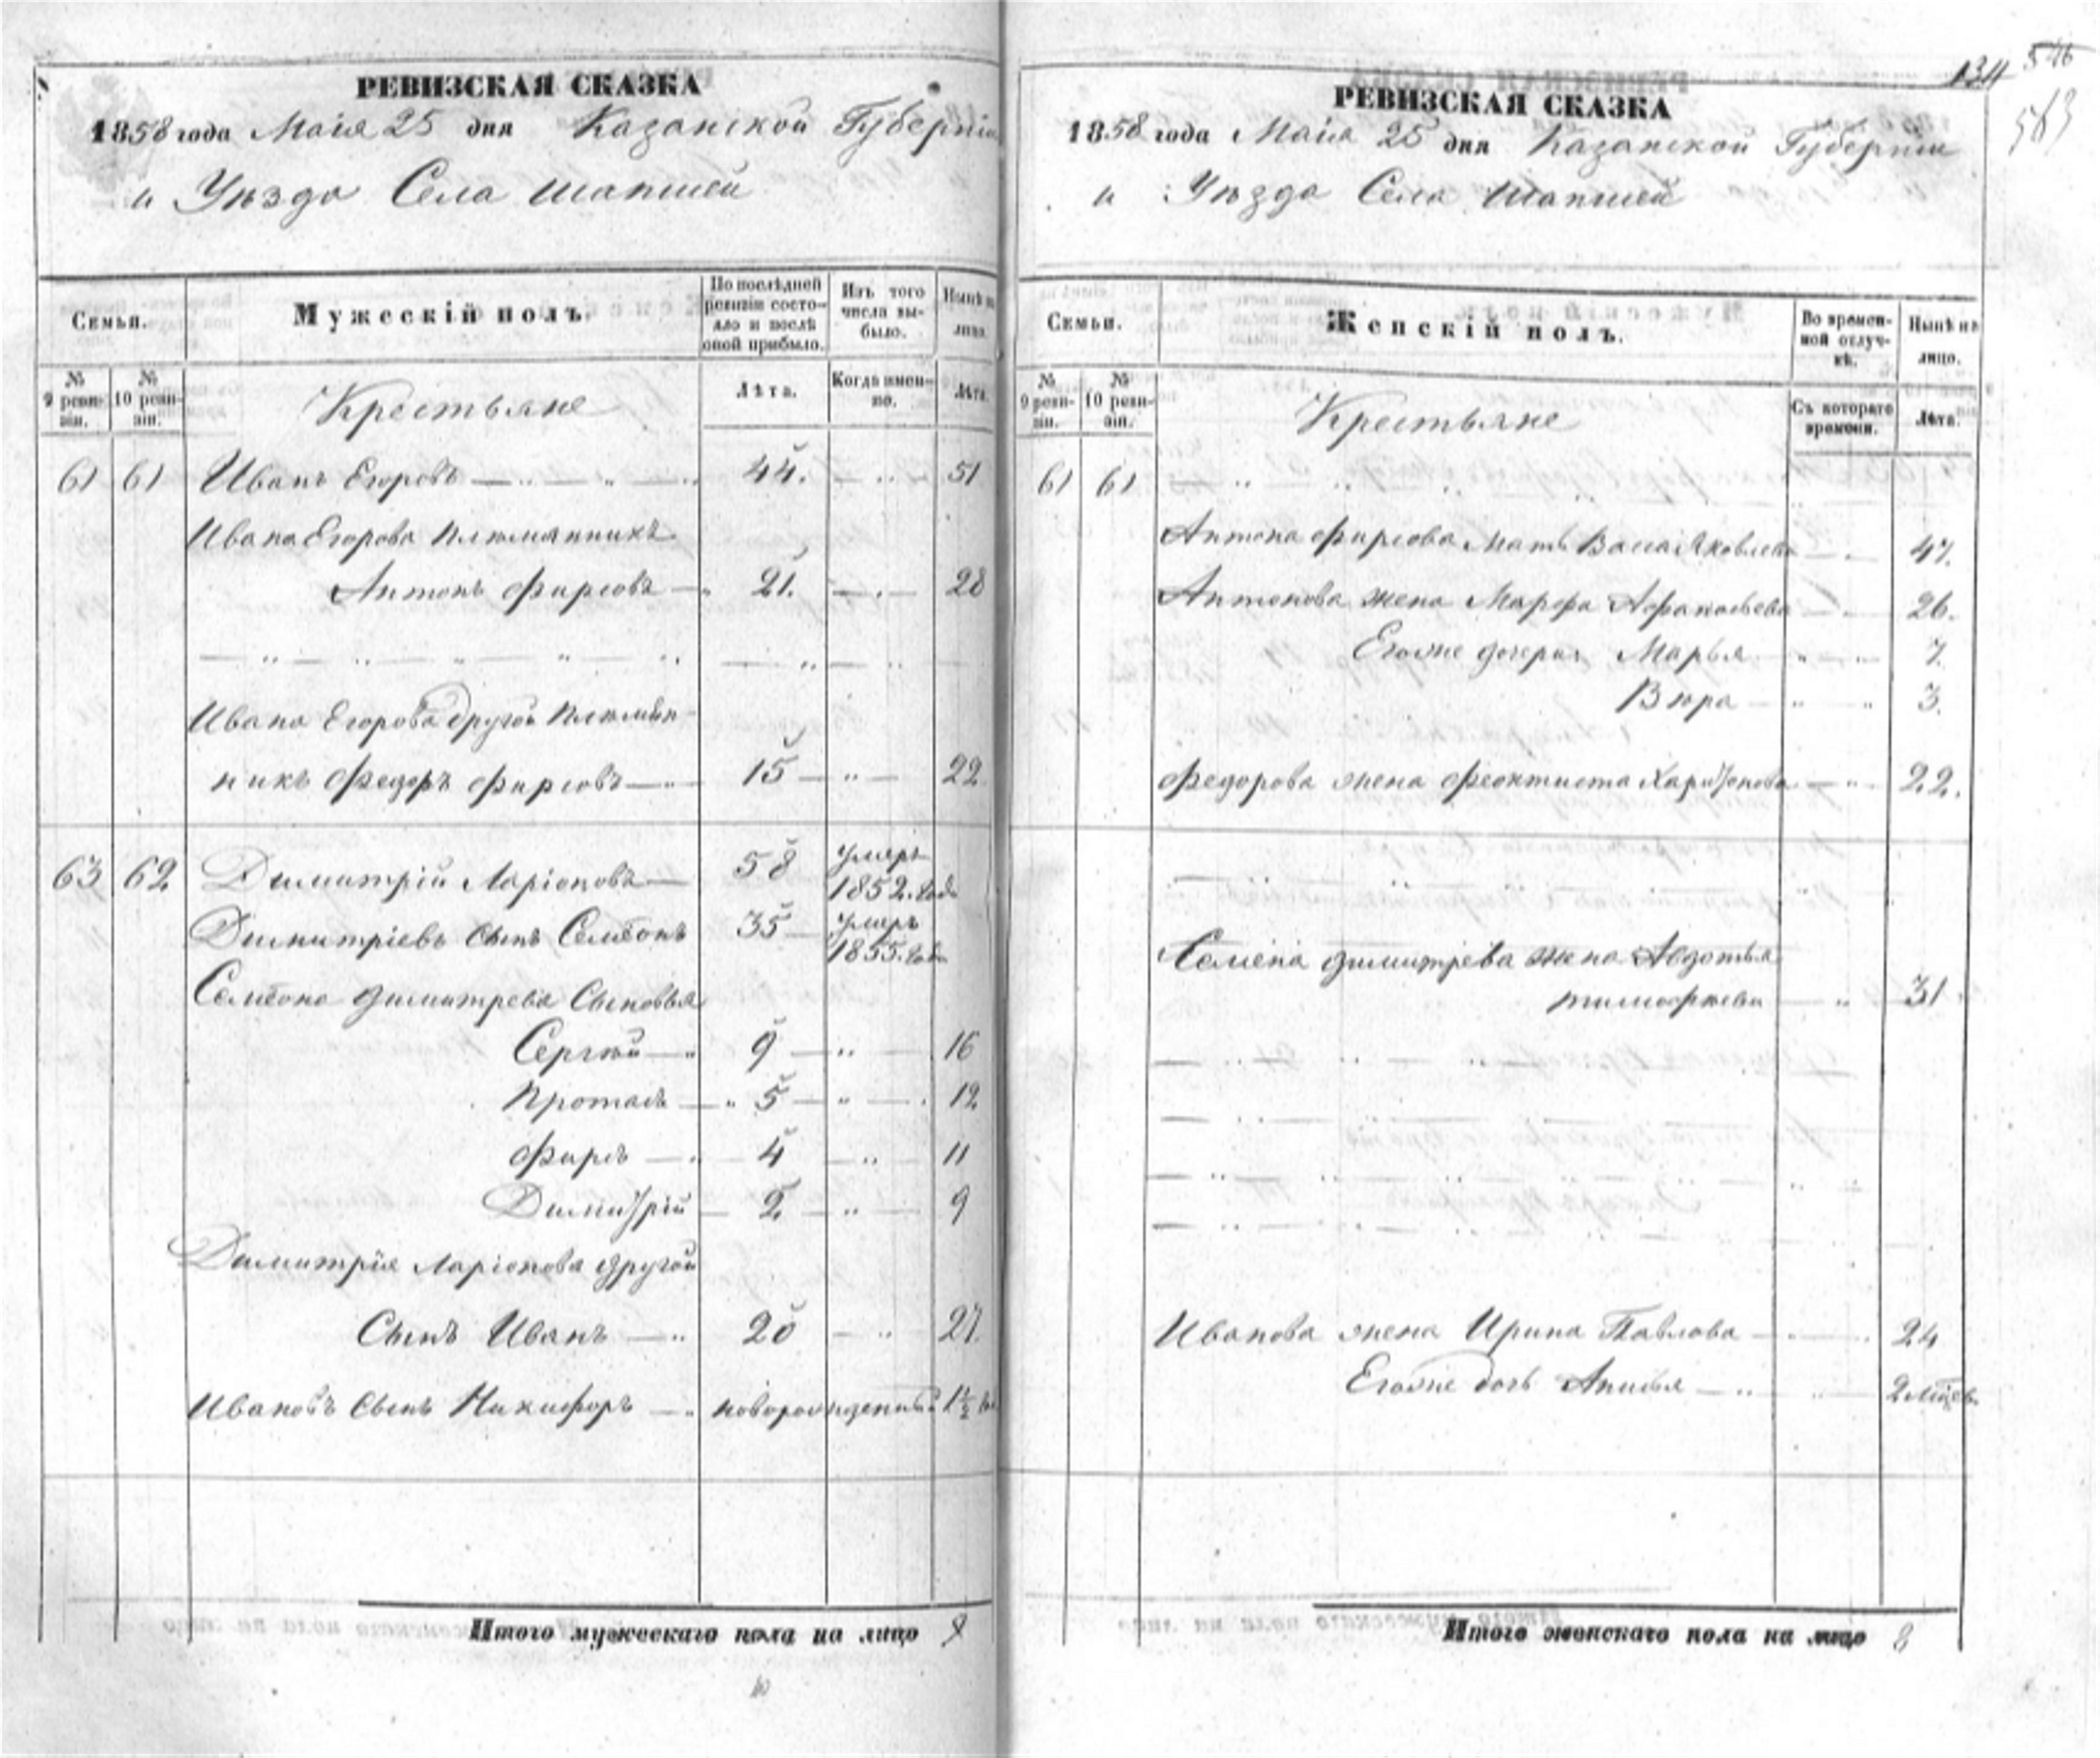 РЕВИЗСКАЯ СКАЗКА
1858 года Маія 25 дня Казанской Губерніи
и Уѣзда Села Шапшей
Семьи.
Мужескій полъ.
По послѣдней ревизіи состояло и послѣ оной прибыло.
Изъ того числа выбыло.
Нынѣ на лицо.
№ 9 ревизіи.
№ 10 ревизіи.
Крестьяне
Лѣта.
Когда именно.
Лѣта.
61 61 Иванъ Егоровъ 44. 51
Ивана Егорова племянникъ
Антонъ Фирсовъ 21. 28
Ивана Егорова другой племян-
никъ Федоръ Фирсовъ 15 22
63 62 Димитрій Ларіоновъ 58 умеръ 1852. года
Димитріевъ сынъ Семёонъ 35 умеръ 1855. года
Семёона Димитрева сыновья
Сергѣй 9 16
Протасъ 5 12
Фирсъ 4 11
Димитрій 2 9
Димитрія Ларіонова другой
Сынъ Иванъ 20 27.
Ивановъ сынъ Никифоръ новорожденный 1½
Итого мужескаго пола на лицо 9
134
546
563
РЕВИЗСКАЯ СКАЗКА
1858 года Маія 25 дня Казанской Губерніи
и Уѣзда Села Шапшей
Семьи.
Женскій полъ.
Во временной отлучкѣ.
Нынѣ на лицо.
№ 9 ревизіи.
№ 10 ревизіи.
Крестьяне
Съ котораго времени.
Лѣта.
61 61
Антона Фирсова мать Васа Яковлева 47.
Антонова жена Марфа Афанасьева 26.
Егоже дочери Марья 7.
Вѣра 3.
Федорова жена Феоктиста Харитонова 22.
Семёна Димитрева жена Авдотья
Тимофѣева 31
Иванова жена Ирина Павлова 24
Егоже дочь Анисья 2 мѣсяц.
Итого женскаго пола на лицо 8